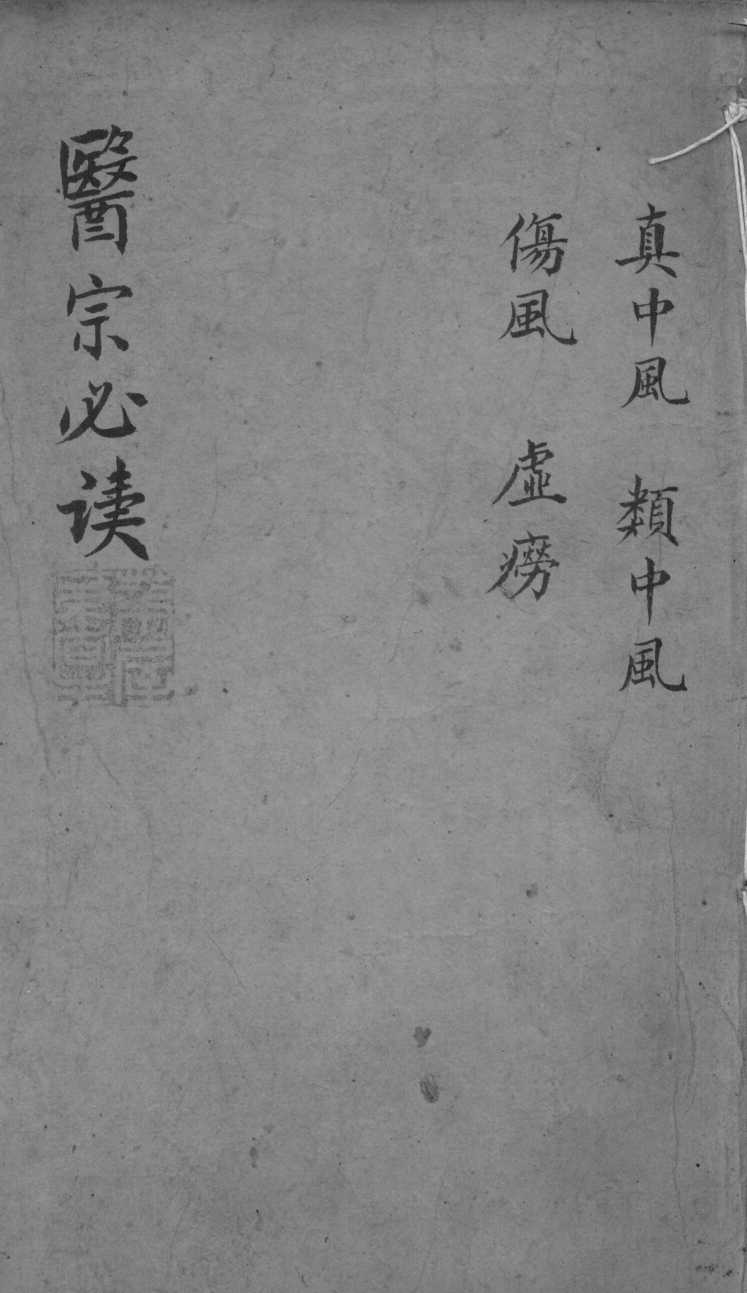 真中風 類中風
傷風 虛癆
醫宗必读